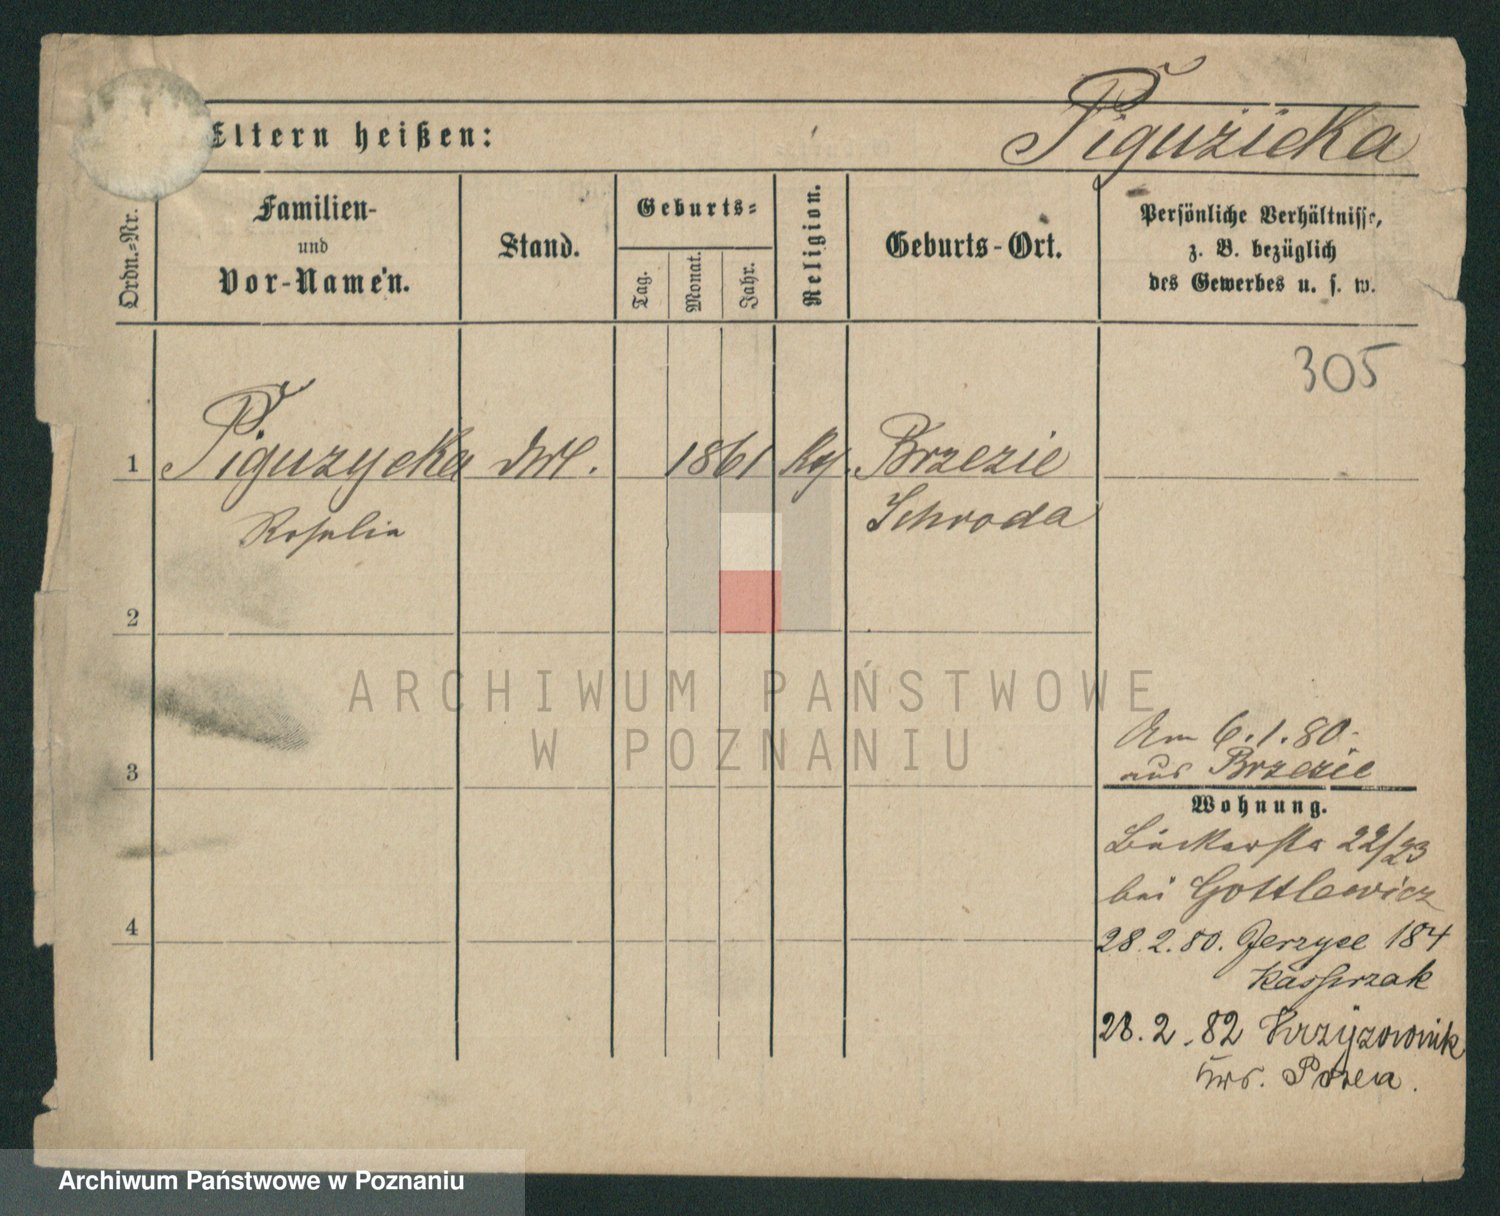 Piguzicka
Eltern heißen:
Ordn.-Nr.
Familien-
und
Vor-Namen.
Stand.
Geburts-
Tag.
Monat.
Jahr.
Religion.
Geburts-Ort.
Persönliche Verhältnisse,
z. B. bezüglich
des Gewerbes u. s. w.
305
1 Piguzycka 1861 Brzezie
Rosalia Schroda
2
ARCHIWUM PAŃSTWOWE
W POZNANIU
Am 6.1.80.
aus Brzezie
3
Wohnung.
Bäckerstr 22/23
bei Gottlewicz
4
28.2.80. Jerzyce 184
Kasprzak
28.2.82 Krzyzownik
Krs. Posen.
Archiwum Państwowe w Poznaniu